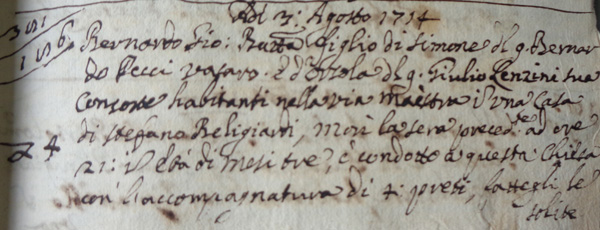 Adi 3: Agosto 1714
Bernardo Gio: Batta figlio di Simone d̃l q. Bernar
do Pecci vasaro. E d'Orsola d̃l q. Giulio Lenzini sua
Consorte habitanti nella via maestra i una Casa
di Stefano Religiardi, morì la sera preced.te ad ore
21: i età di mesi tre, è condotto a questa Chiesa
con l'accompagnatura di 4: preti, fattegli le
solite